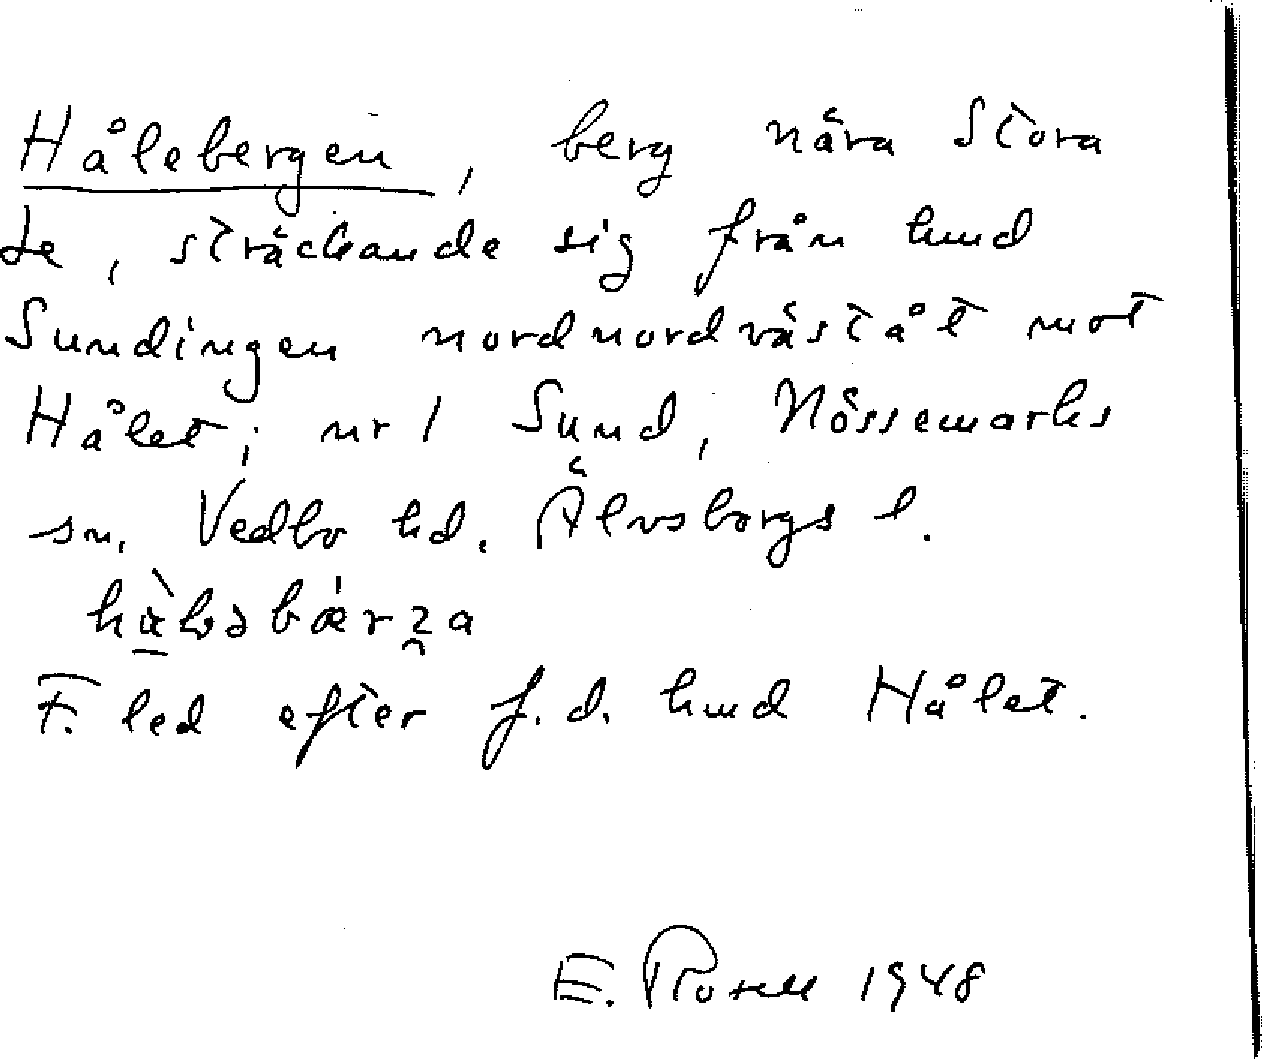 Hålebergen, berg nära Stora
Le, sträckande sig från hmd
Sundingen nordnordväståt mot
Hålet; nr 1 Sund, Nössemarks
sn, Vedbo hd. Älvsborgs l.
F. led efter f.d. hmd Hålet.
E. Rosell 1948